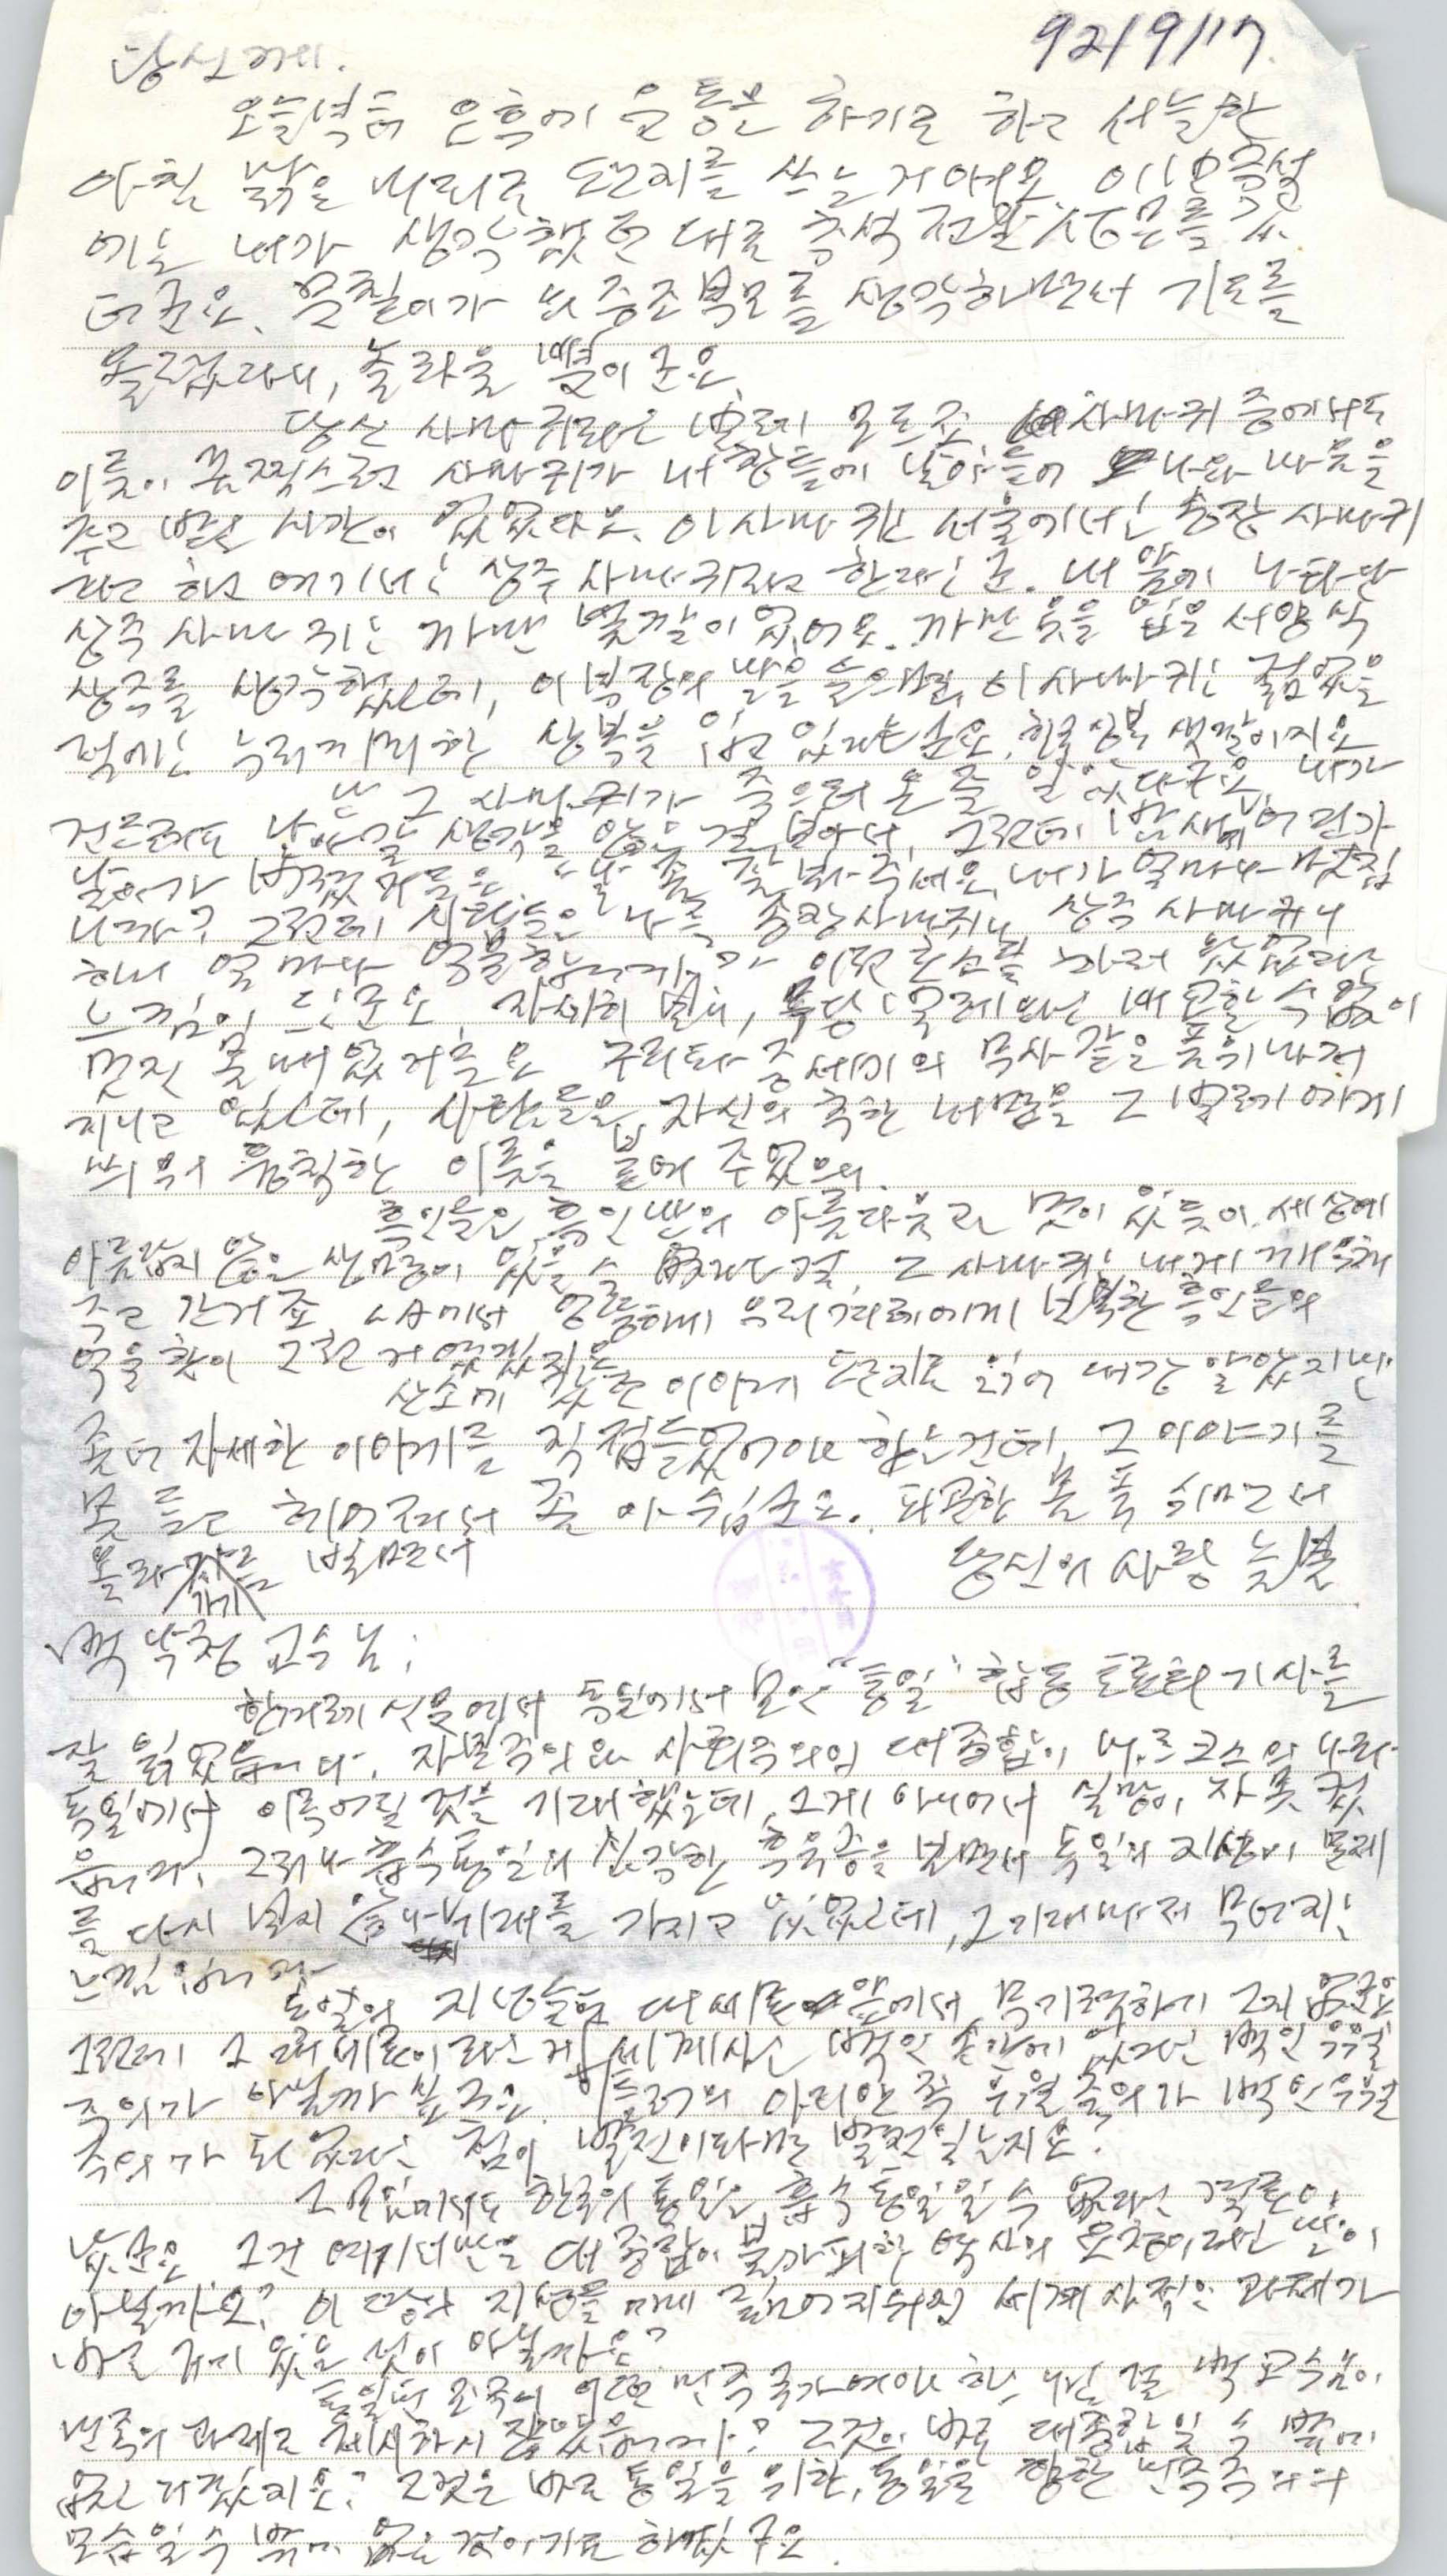 92/9/17.
당신에게.
오늘부터 오후에 운동을 하기로 하고 서늘한
아침 맑은 머리로 편지를 쓰는 거예요. 이번 추석
에는 내가 생각했던 대로 추석 전날 성묘를 갔
더군요. 문칠이가 외증조부모를 생각하면서 기도를
올렸다니, 놀라운 일이군요.
당신 사마귀라는 벌레 모르죠. 사마귀 중에서도
이름이 끔찍스런 사마귀가 내 창틀에 날아들어 나와 마음을
주고 받은 시간이 있었다오. 이 사마귄 서울에서는 송장 사마귀
라고 하고 여기서는 상주 사마귀라고 한다는군. 내 앞에 나타난
상주 사마귀는 까만 빛깔이었어요. 까만 옷을 입은 서양식
상주를 생각했는데, 이 부장의 말을 들으면, 이 사마귀는 젊었을
적에는 누리끼리한 상복을 입고 있다는군요. 한국 상복 색깔이지요.
난 그 사마귀가 죽으러 온 줄 알았다구요. 내가
건드려도 날아갈 생각을 않는 걸 보아서. 그런데 밤 새 어딘가
날아가 버렸거든요. "날 좀 잘 봐 주세요. 내가 얼마나 멋집
니까? 그런데 사람들은 나를 송장사마귀니 상주 사마귀니
하니 얼마나 억울합니까?" 이런 호소를 하러 왔었다는
느낌이 드는군요. 자세히 보니, 무당벌레와는 비교할 수 없이
멋진 몸매였거든요. 구라파 중세기의 무사 같은 풍위마저
지니고 있는데, 사람들은 자신의 추한 마음을 그 벌레에게
씌워 흉칙한 이름을 붙여 주었으니.
흑인들은 흑인만의 아름다움과 멋이 있듯이. 세상에
아름답지 않은 생명이 있을 수 없다는 걸 그 사마귀는 내게 깨우쳐
주고 간 거죠. LA에서 엉뚱하게 우리 겨레에게 보복한 흑인들의
억울함이 그런 거였겠지요.
산소에 갔던 이야기 편지로 읽어 대강 알았지만
좀더 자세한 이야기를 직접 들었어야 하는건데, 그 이야기를
못 듣고 헤어져서 좀 아쉽군요. 피곤한 몸 푹 쉬면서
올라가기를 빌면서 당신의 사랑 늦봄
백낙청 교수님;
한겨레 신문에서 독일에서 모인 "통일" 합동 토론회 기사를
잘 읽었습니다. 자본주의와 사회주의의 대종합이 마르크스의 나라
독일에서 이루어질 것을 기대했는데, 그게 아니어서 실망이 자못 컸
습니다. 그러나 흡수통일의 심각한 후유증을 보면서 독일의 지성이 문제
를 다시 보지 않나 기대를 가지고 있었는데, 그 기대마저 무너지는
느낌입니다.
독일의 지성들은 대세론 앞에서 무기력하기 그지 없군요.
그런데 그 대세론이라는 게 세계사는 백인 손안에 있다는 백인 우월
주의가 아닐까 싶군요. 히틀러의 아리안 족 우월주의가 백인 우월
주의가 되었다는 점이 발전이라면 발전일는지요?
그 모임에서도 한국의 통일은 흡수 통일일 수 없다는 결론이
났군요. 그건 여기서만은 대종합이 불가피한 역사의 요청이라는 말이
아닐까요? 이 땅의 지성들에게 짊어지워진 세계사적인 과제가
바로 거기 있는 것이 아닐까요?
통일된 조국이 어떤 민족 국가여야 하느냐는 걸 백 교수님이
민족의 과제로 제시하시지 않았습니까? 그것이 바로 대종합일 수 밖에
없는 거겠지요? 그것은 바로 통일을 위한, 통일을 향한 민족주의의
모습일 수 밖에 없는 것이기도 하겠구요.